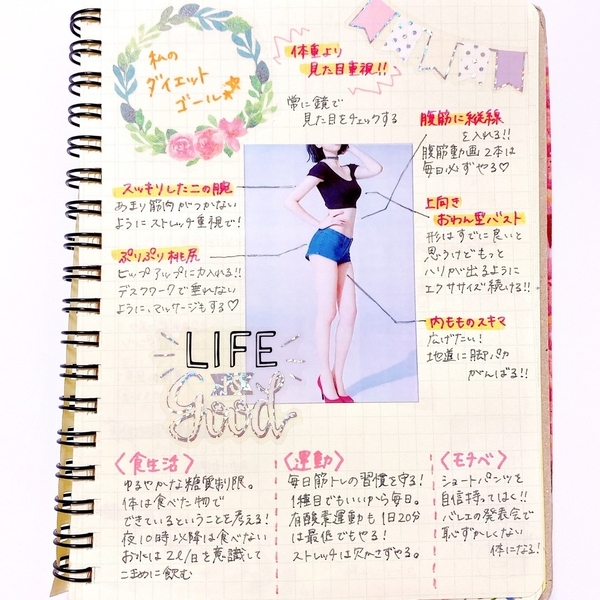 私の
ダイエット
ゴール
体重より
見た目重視!!
常に鏡で
見た目をチェックする
腹筋に縦線
を入れる!!
腹筋動画2本は
毎日必ずやる♡
スッキリした二の腕
あまり筋肉がつかない
ようにストレッチ重視で!
上向き
おわん型バスト
形はすでに良いと
思うけどもっと
ハリが出るように
エクササイズ続ける!!
ぷりぷり桃尻
ヒップアップに力入れる!!
デスクワークで垂れない
ように、マッサージもする♡
内もものスキマ
広げたい!
地道に脚パカ
がんばる!!
LIFE
IS
Good
〈食生活〉
ゆるやかな糖質制限。
体は食べた物で
できているということを考える!
夜10時以降は食べない
お水は2ℓ/日を意識して
こまめに飲む
〈運動〉
毎日筋トレの習慣を守る!
1種目でもいいから毎日。
有酸素運動も1日20分
は最低でもやる!
ストレッチは欠かさずやる。
〈モチベ〉
ショートパンツを
自信持ってはく!!
バレエの発表会で
恥ずかしくない
体になる!